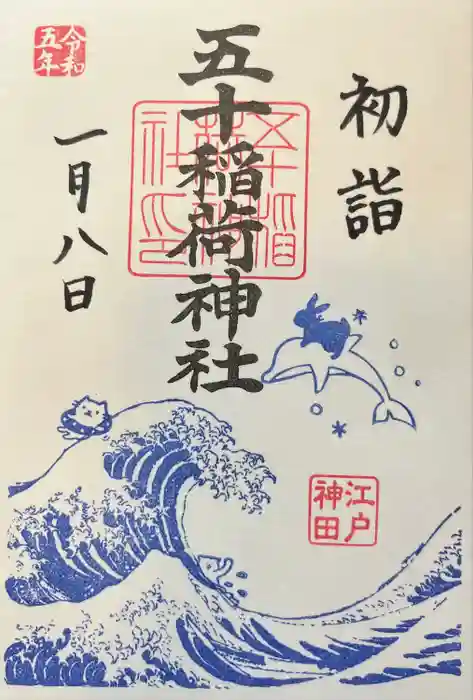 初詣
五十稲荷神社
令和
五年
一月八日
江戸
神田